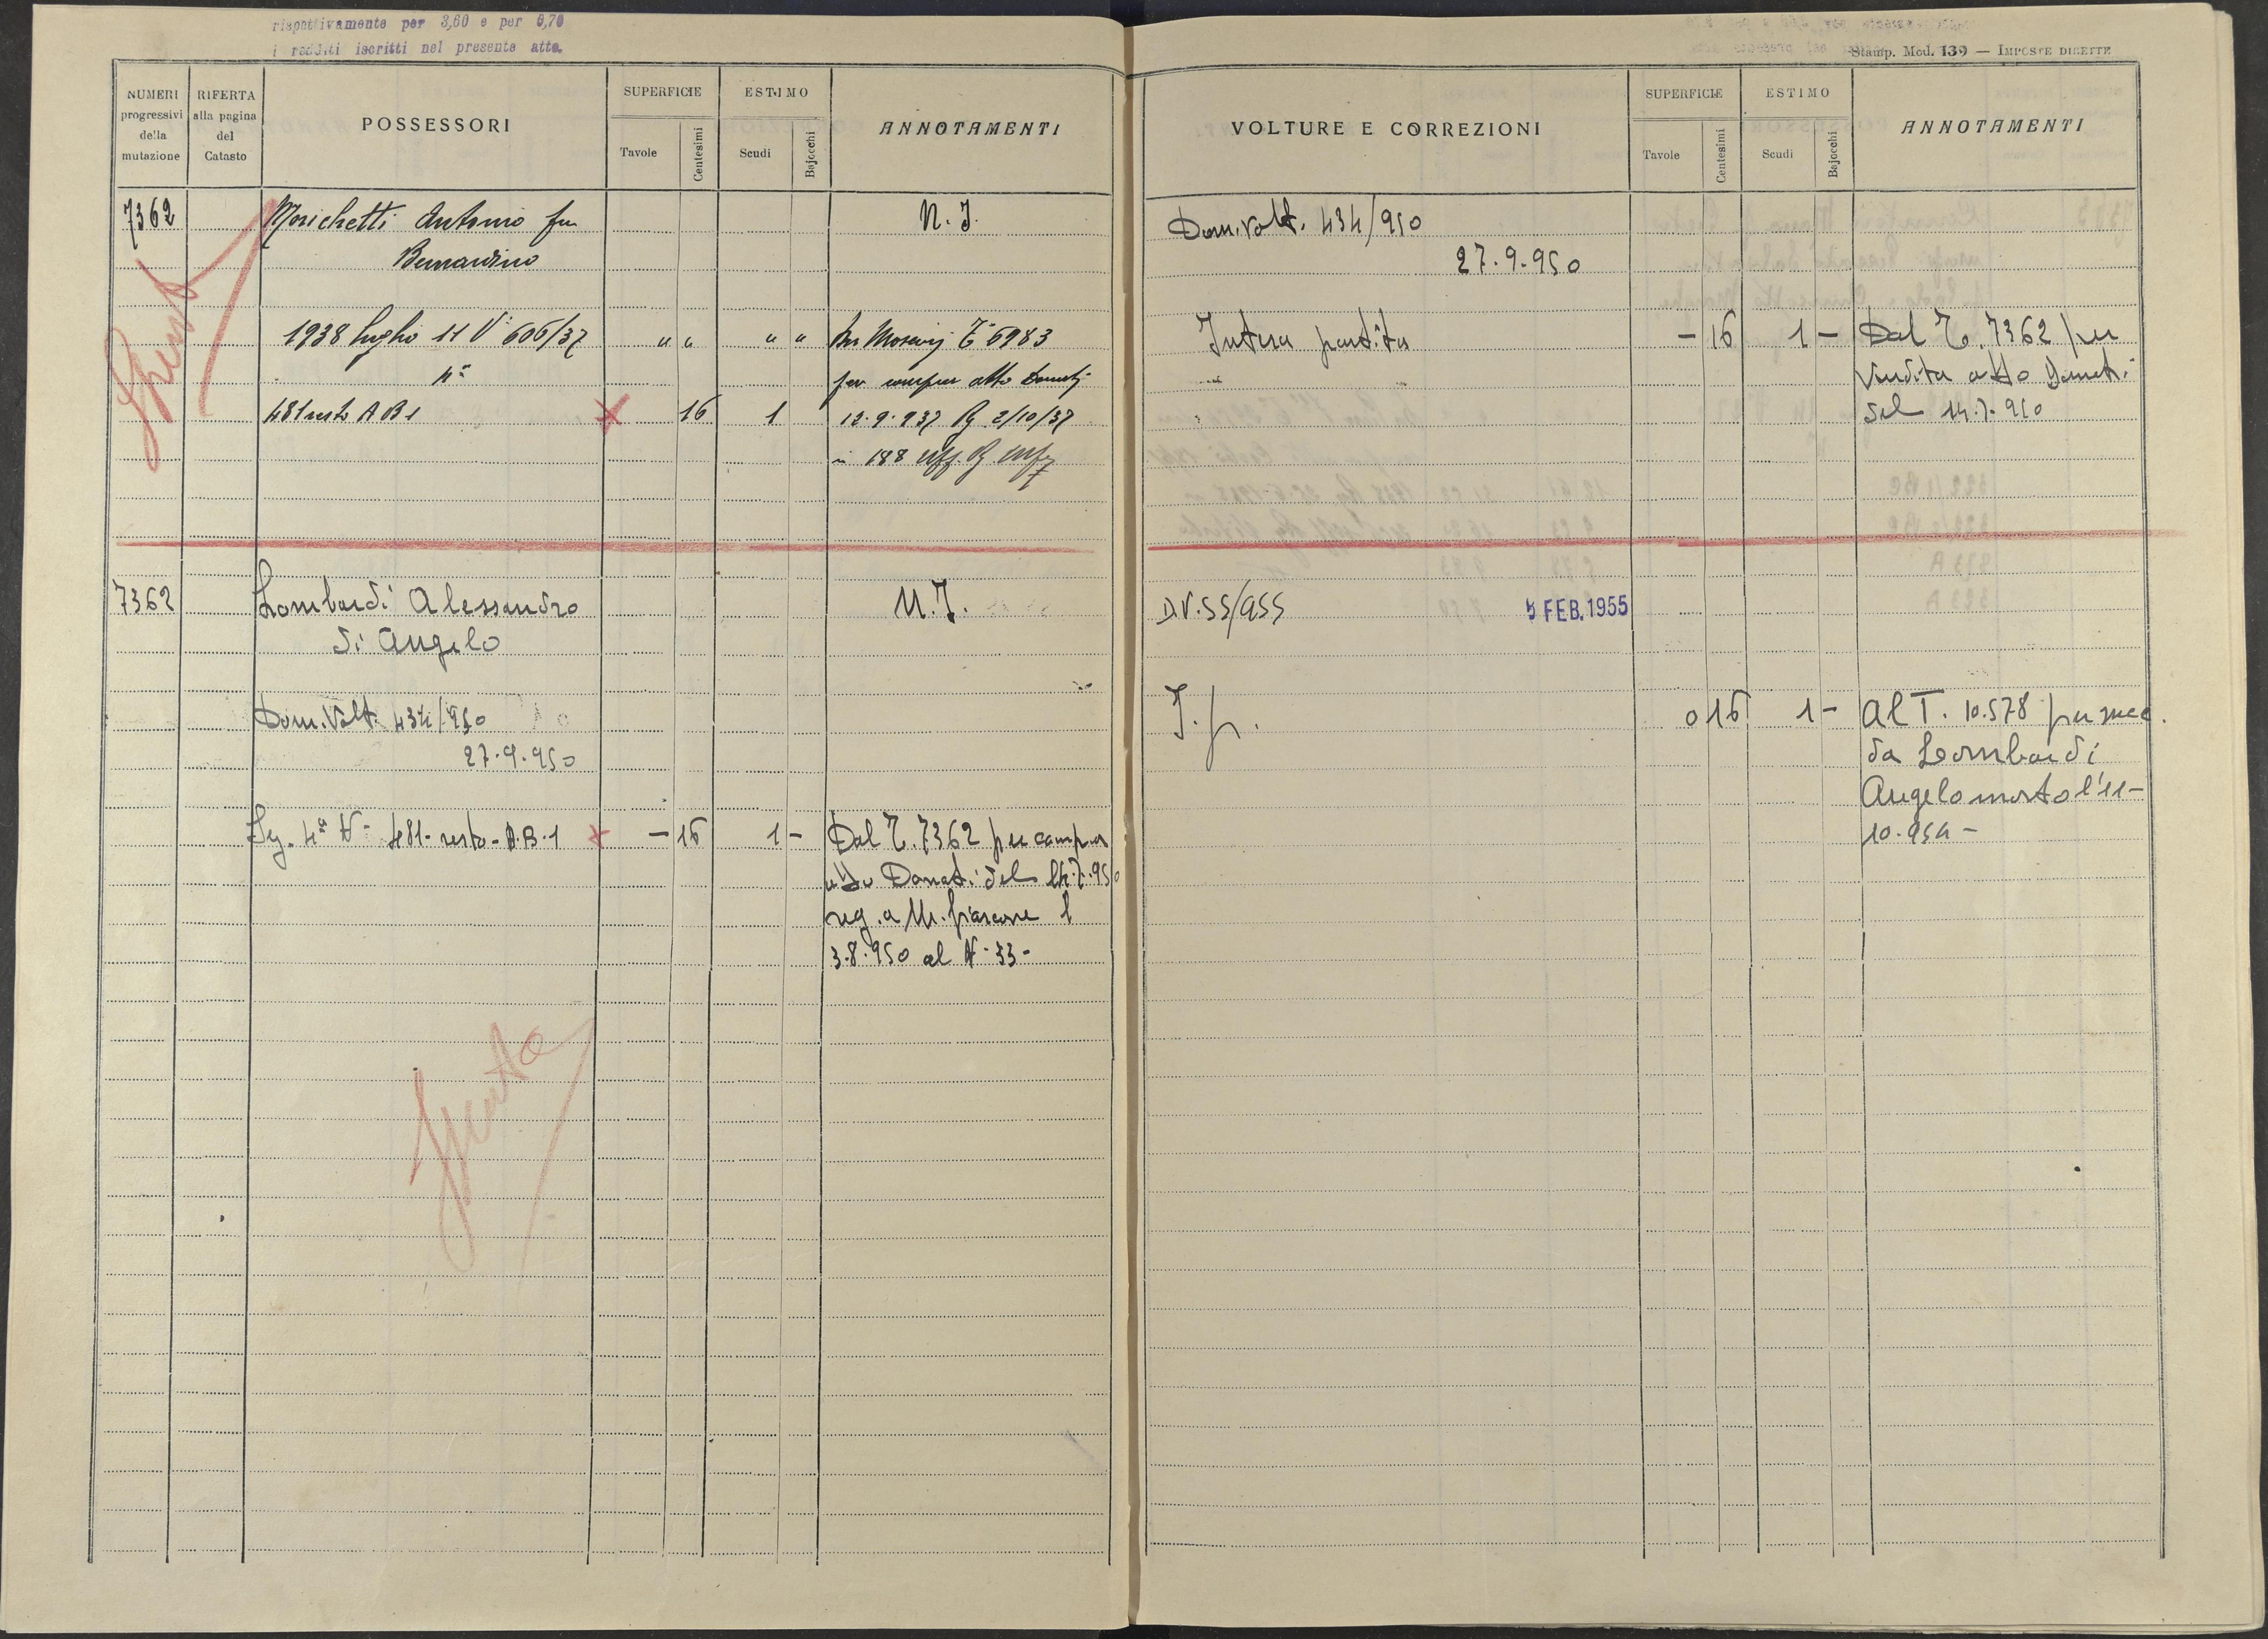 rispettivamente per 3,60 e per 0,70
i redditi iscritti nel presente atto.
NUMERI progressivi della mutazione
RIFERTA alla pagina del Catasto
POSSESSORI
SUPERFICIE
Tavole
Centesimi
ESTIMO
Scudi
Bajocchi
ANNOTAMENTI
7362
Morichetti Antonio fu
N. I.
Bernardino
1938 luglio 11 V. 606/37 " " " "
T. 6983
4ª
481 resto A B 1 16 1
13.9.937 Rg 2/10/37
in 188 Uff. Rg
Spento
7362
Lombardi Alessandro
N. I.
di Angelo
Dom. Volt. 434/950
27.9.950
Sez. 4ª N- 481- resto- A.B.1 - 16 1 -
Dal T. 7362 per compra
atto Donati del 14.7.950
reg. a M. fiascone l
3.8.950 al N. 33-
Spento
Stamp. Mod. 139 — IMPOSTE DIRETTE
VOLTURE E CORREZIONI
SUPERFICIE
Tavole
Centesimi
ESTIMO
Scudi
Bajocchi
ANNOTAMENTI
Dom. Volt. 434/950
27.9.950
Intera partita - 16 1 -
Dal T. 7362 per
vendita atto Donati
del 14.7.950
D.V. 55/955 5 FEB. 1955
I. p. 0 16 1 -
Al T. 10.578 per succ.
da Lombardi
Angelo morto l'11-
10.954 -